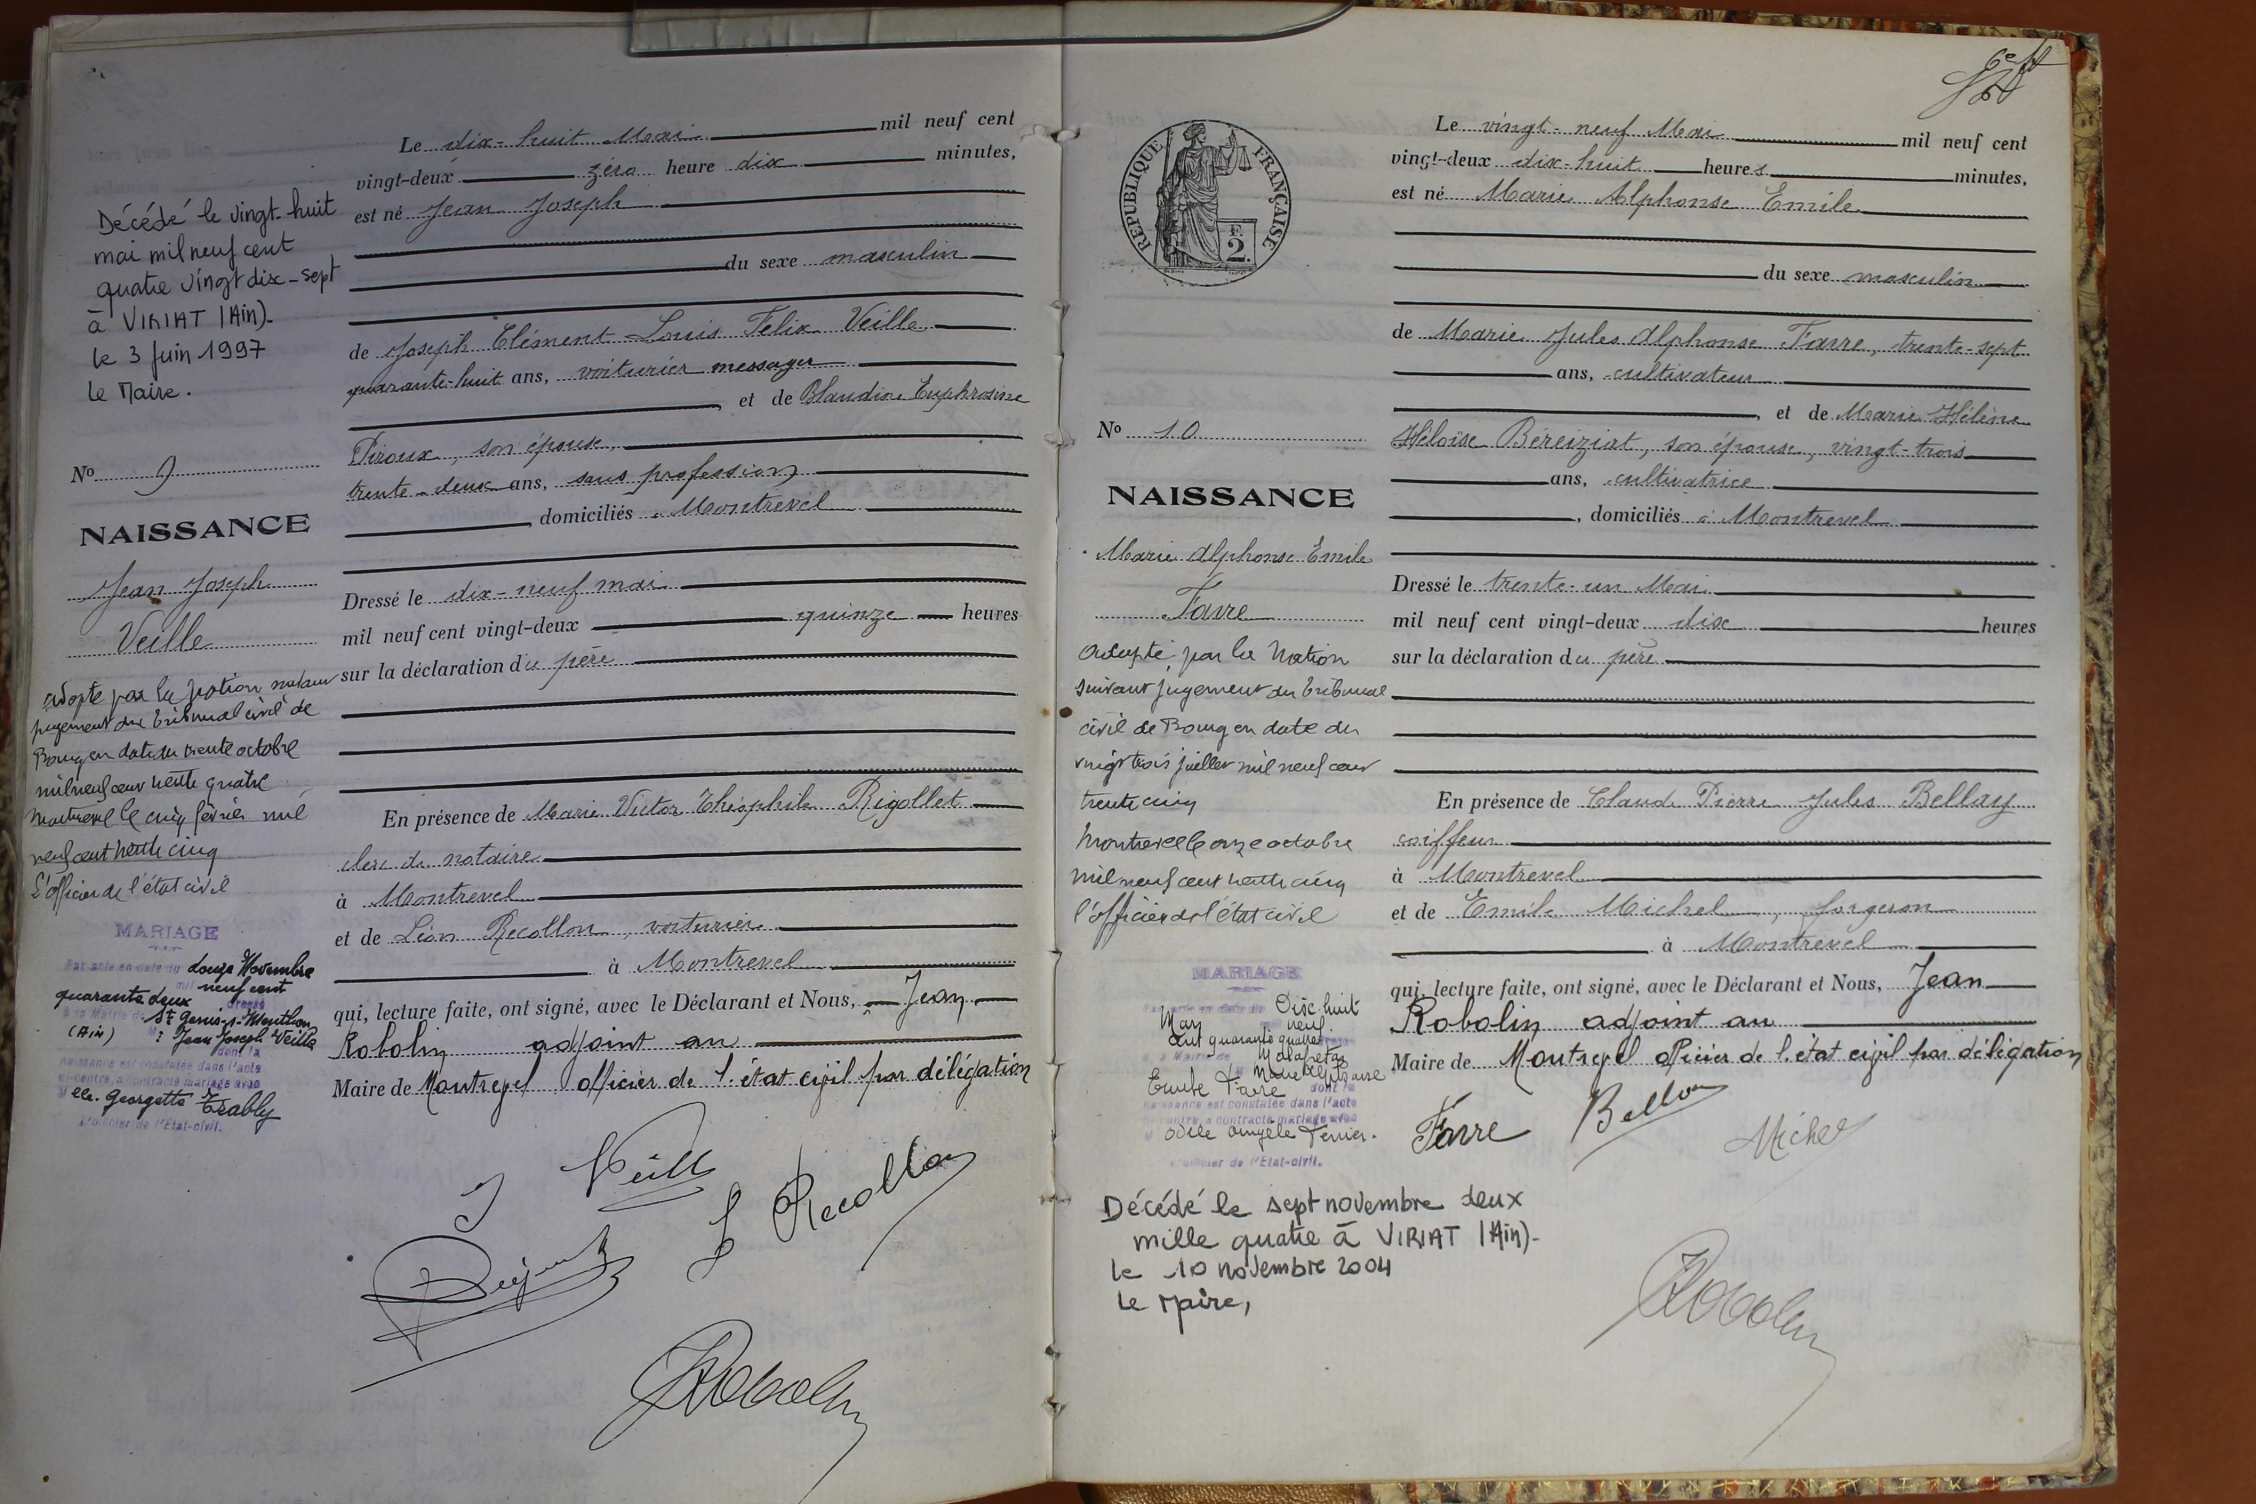 Décédé le vingt-huit
mai mil neuf cent
quatre vingt dix-sept
à VIRIAT (Ain)-
le 3 Juin 1997
le Maire.
No 9
NAISSANCE
Jean Joseph
Veille
adopté par la Nation suivant
jugement du tribunal civil de
Bourg en date du trente octobre
mil neuf cent trente quatre
Montrevel le cinq février mil
neuf cent trente cinq
L'officier de l'état civil
MARIAGE
Par acte en date du douze Novembre
mil neuf cent
quarante deux dressé
à la Mairie de St Genis-s-Menthon
(Ain) M : Jean Joseph Veille
dont la
naissance est constatée dans l'acte
ci-contre, a contracté mariage avec
Melle. Georgette Trably
L'Officier de l'Etat-civil.
Le dix-huit Mai mil neuf cent
vingt-deux zéro heure dix minutes,
est né Jean Joseph
du sexe masculin
de Joseph Clément Louis Felix Veille
quarante-huit ans, voiturier messager
, et de Blandine Euphrosine
Piroux, son épouse,
trente-deux ans, sans profession
, domiciliés à Montrevel
Dressé le dix-neuf mai
mil neuf cent vingt-deux quinze heures
sur la déclaration du père
En présence de Marie Victor Théophile Rigollet
clerc de notaire
à Montrevel
et de Léon Recollon, voiturier
à Montrevel
qui, lecture faite, ont signé, avec le Déclarant et Nous, Jean
Robolin adjoint au
Maire de Montrevel officier de l'état civil par délégation
J Veille
L Recollon
Robolin
REPUBLIQUE FRANÇAISE
F.
2.
No 10
NAISSANCE
Marie Alphonse Emile
Favre
Adopté par la Nation
suivant jugement du tribunal
civil de Bourg en date du
vingt trois juillet mil neuf cent
trente cinq
Montrevel le onze octobre
mil neuf cent trente cinq
l'officier de l'état civil
MARIAGE
Par acte en date du Dix huit
Mars mil neuf
cent quarante quatre dressé
à la Mairie de
Marie Alphonse
Emile Favre dont la
naissance est constatée dans l'acte
ci-contre, a contracté mariage avec
Odile Angèle Terrier.
L'Officier de l'Etat-civil.
Décédé le sept novembre deux
mille quatre à VIRIAT (Ain)-
le 10 novembre 2004
Le Maire,
Le vingt-neuf Mai mil neuf cent
vingt-deux dix-huit heures minutes,
est né Marie Alphonse Emile
du sexe masculin
de Marie Jules Alphonse Favre, trente-sept
ans, cultivateur
, et de Marie Hélène
Héloïse Béreiziat, son épouse, vingt-trois
ans, cultivatrice
, domiciliés à Montrevel
Dressé le trente-un Mai
mil neuf cent vingt-deux dix heures
sur la déclaration du père
En présence de Claude Pierre Jules Bellay
coiffeur
à Montrevel
et de Emile Michel, forgeron
à Montrevel
qui, lecture faite, ont signé, avec le Déclarant et Nous, Jean
Robolin adjoint au
Maire de Montrevel officier de l'état civil par délégation
Favre Bellay Michel
Robolin